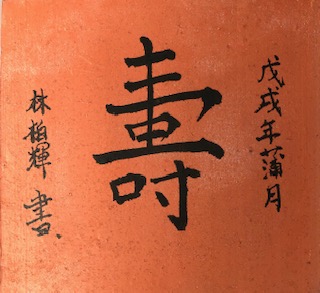 戊戌年蒲月
壽
林栢輝書